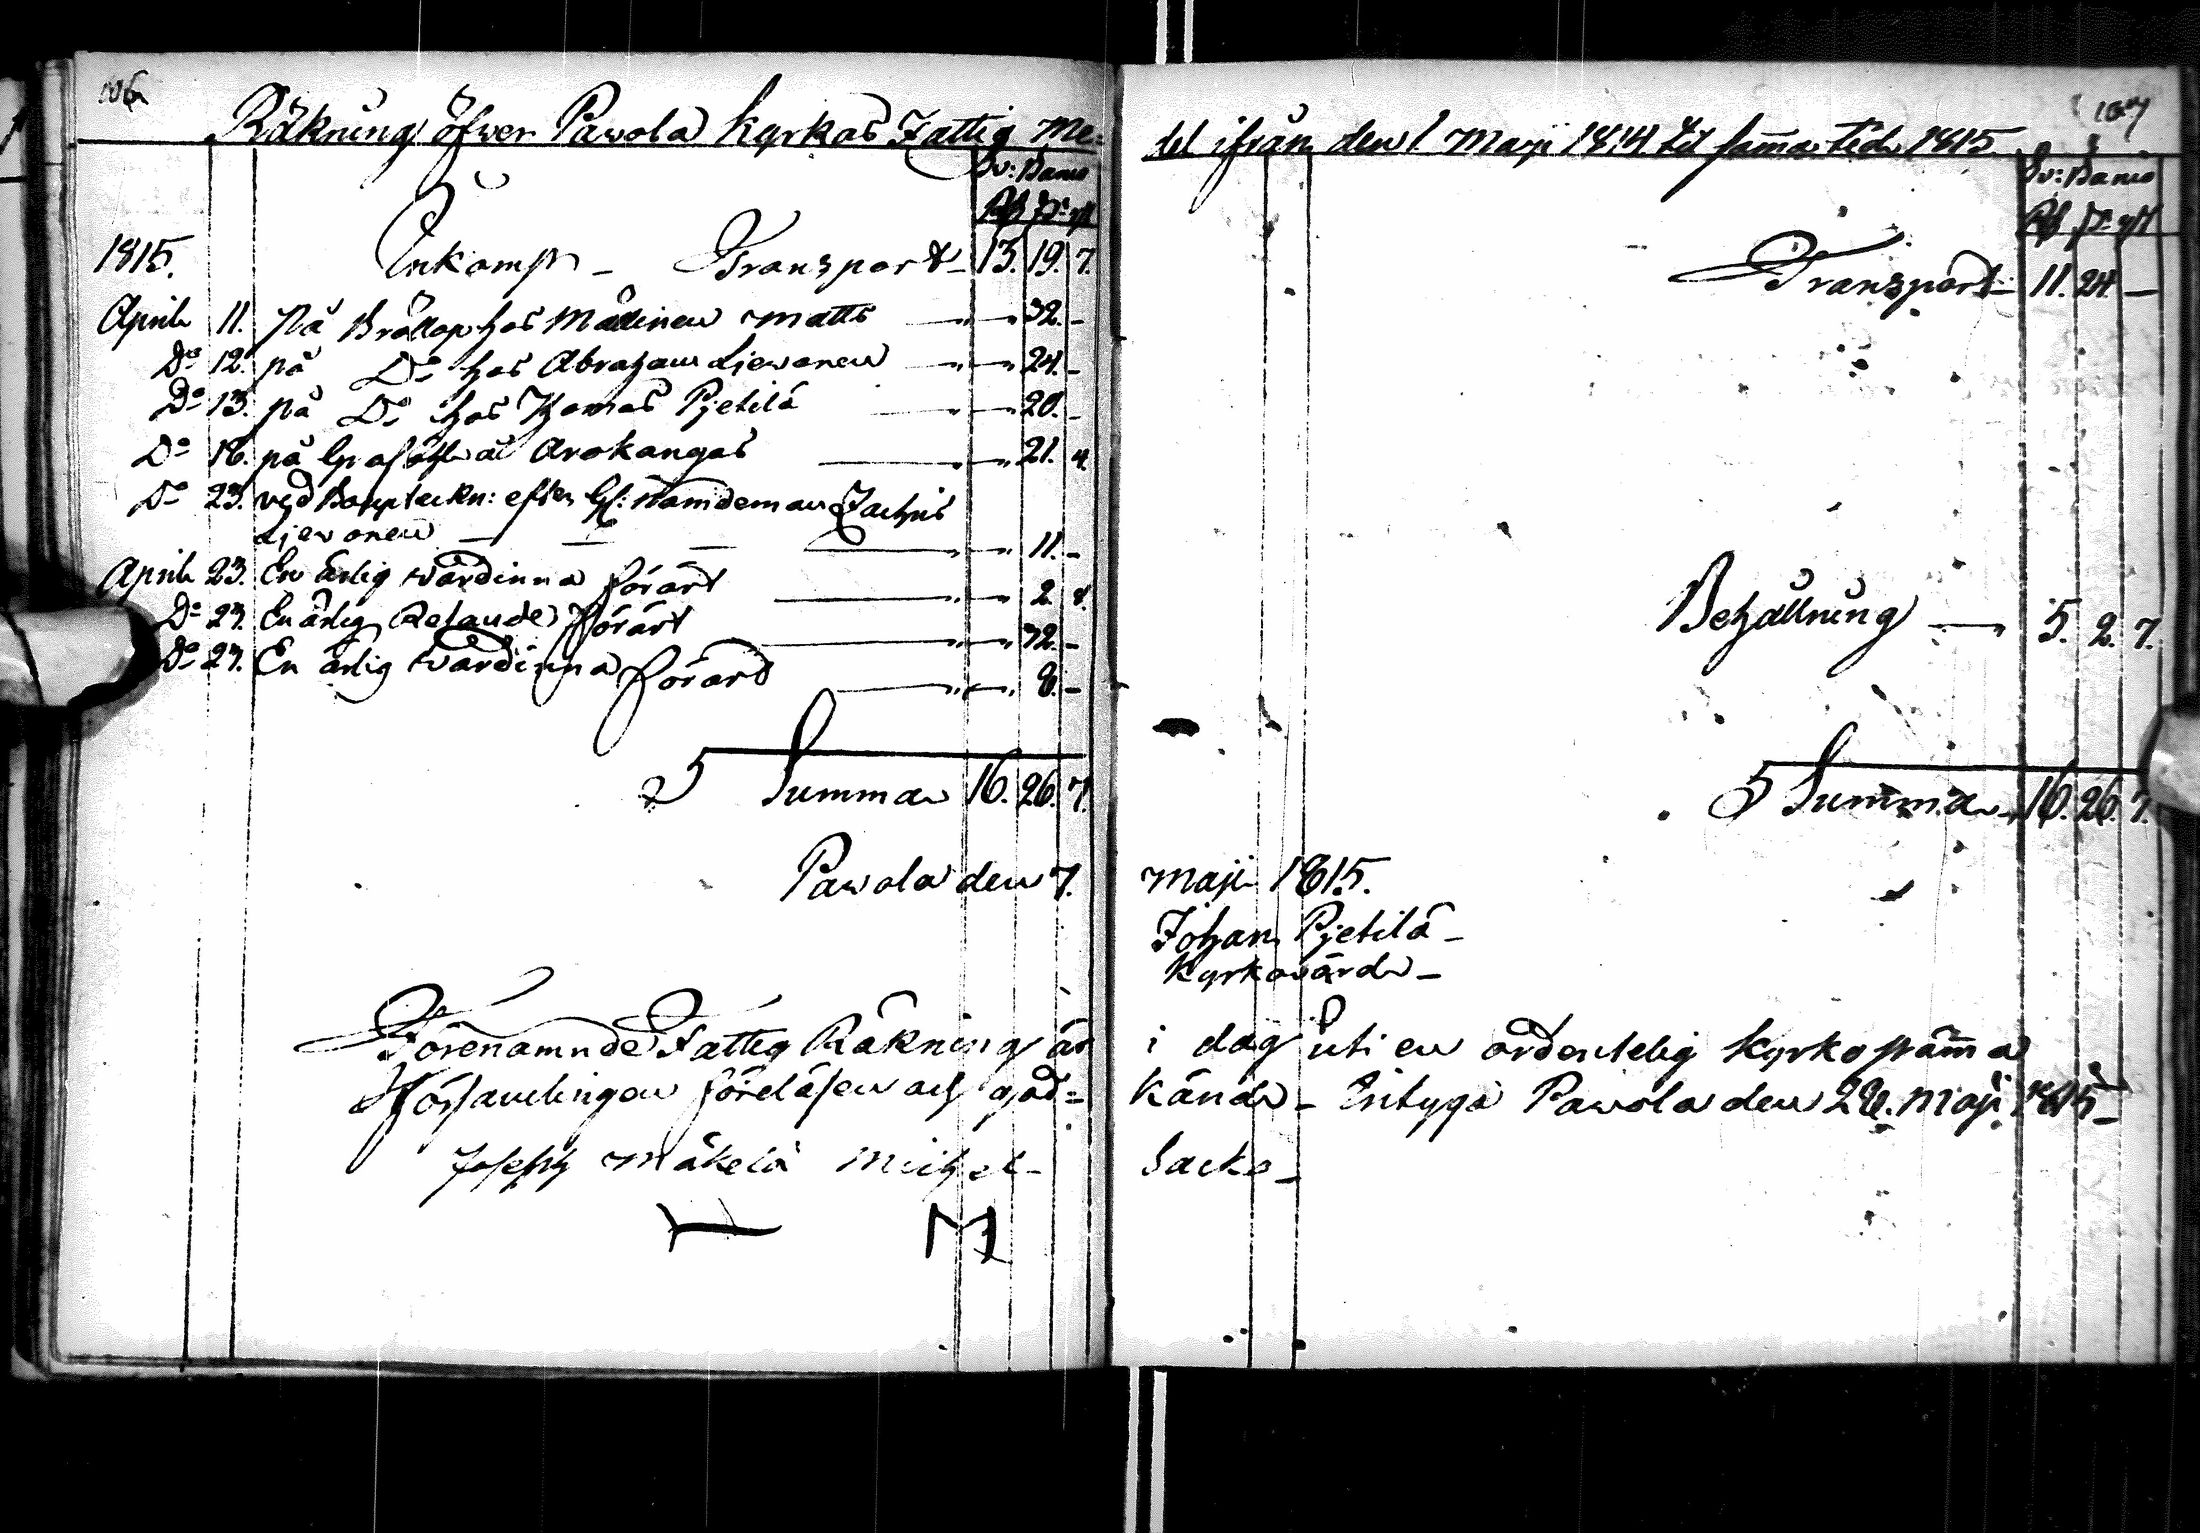 106
Räkning öfwer Pawola Kyrkas Fattig Me=
Sv: Banco
Rd s: rst
1815. Inkomst - Transport - 13. 19. 7.
April 11. På Bröllop hos Mällinen Matts - 32. -
Do 12. på Do hos Abraham Ljewonen - 24. -
Do 13. på Do hos Thomas Pjetilä - 20. -
Do 16. på Grafölh å Arokangas - 21. 4.
Do 23. wid Bouptekn: efter Gl: Nämdeman Zachris
Ljewonen - 11. -
April 23. En ärlig wärdinna förärt - 2. 8.
Do 27. En ärlig Resande förärt - 32. -
Do 27. En ärlig wärdinna förärd - 8. -
Summa 16. 26. 7.
Pawola den 7.
Förenämnde Fattig Räkning är
Församlingen föreläsen och god=
Joseph Mäkelä Michel
M
107
del ifrån den 1. Maji 1814. til samma tid 1815.
Sv: Banco
Rd s: rst
Transport - 11. 24. -
Behållning - 5. 2. 7.
Summa - 16. 26. 7.
Maji 1815.
Johan Pjetilä -
Kyrkowärd -
i dag uti en ordentelig Kyrkostämma
känd - Intyga Pawola den 28. Maji 1815 -
Sacko -